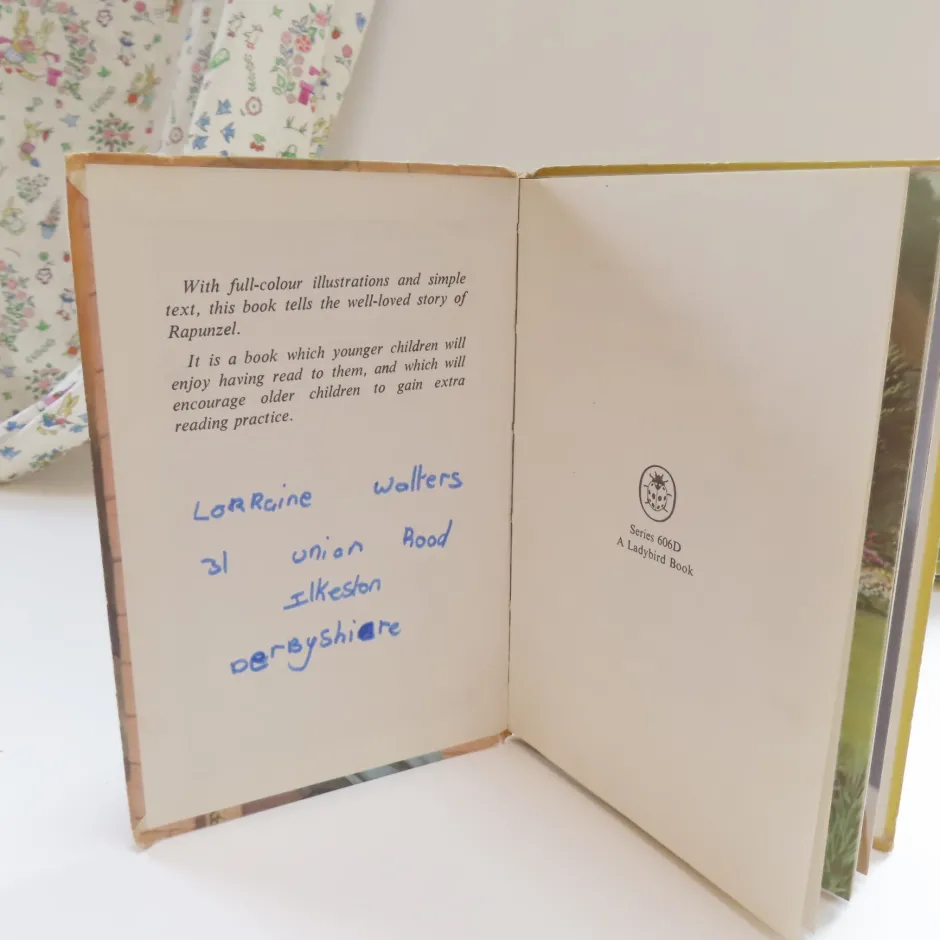 With full-colour illustrations and simple
text, this book tells the well-loved story of
Rapunzel.
It is a book which younger children will
enjoy having read to them, and which will
encourage older children to gain extra
reading practice.
LoRRaine Walters
31 union Road
Ilkeston
DerByshire
Series 606D
A Ladybird Book